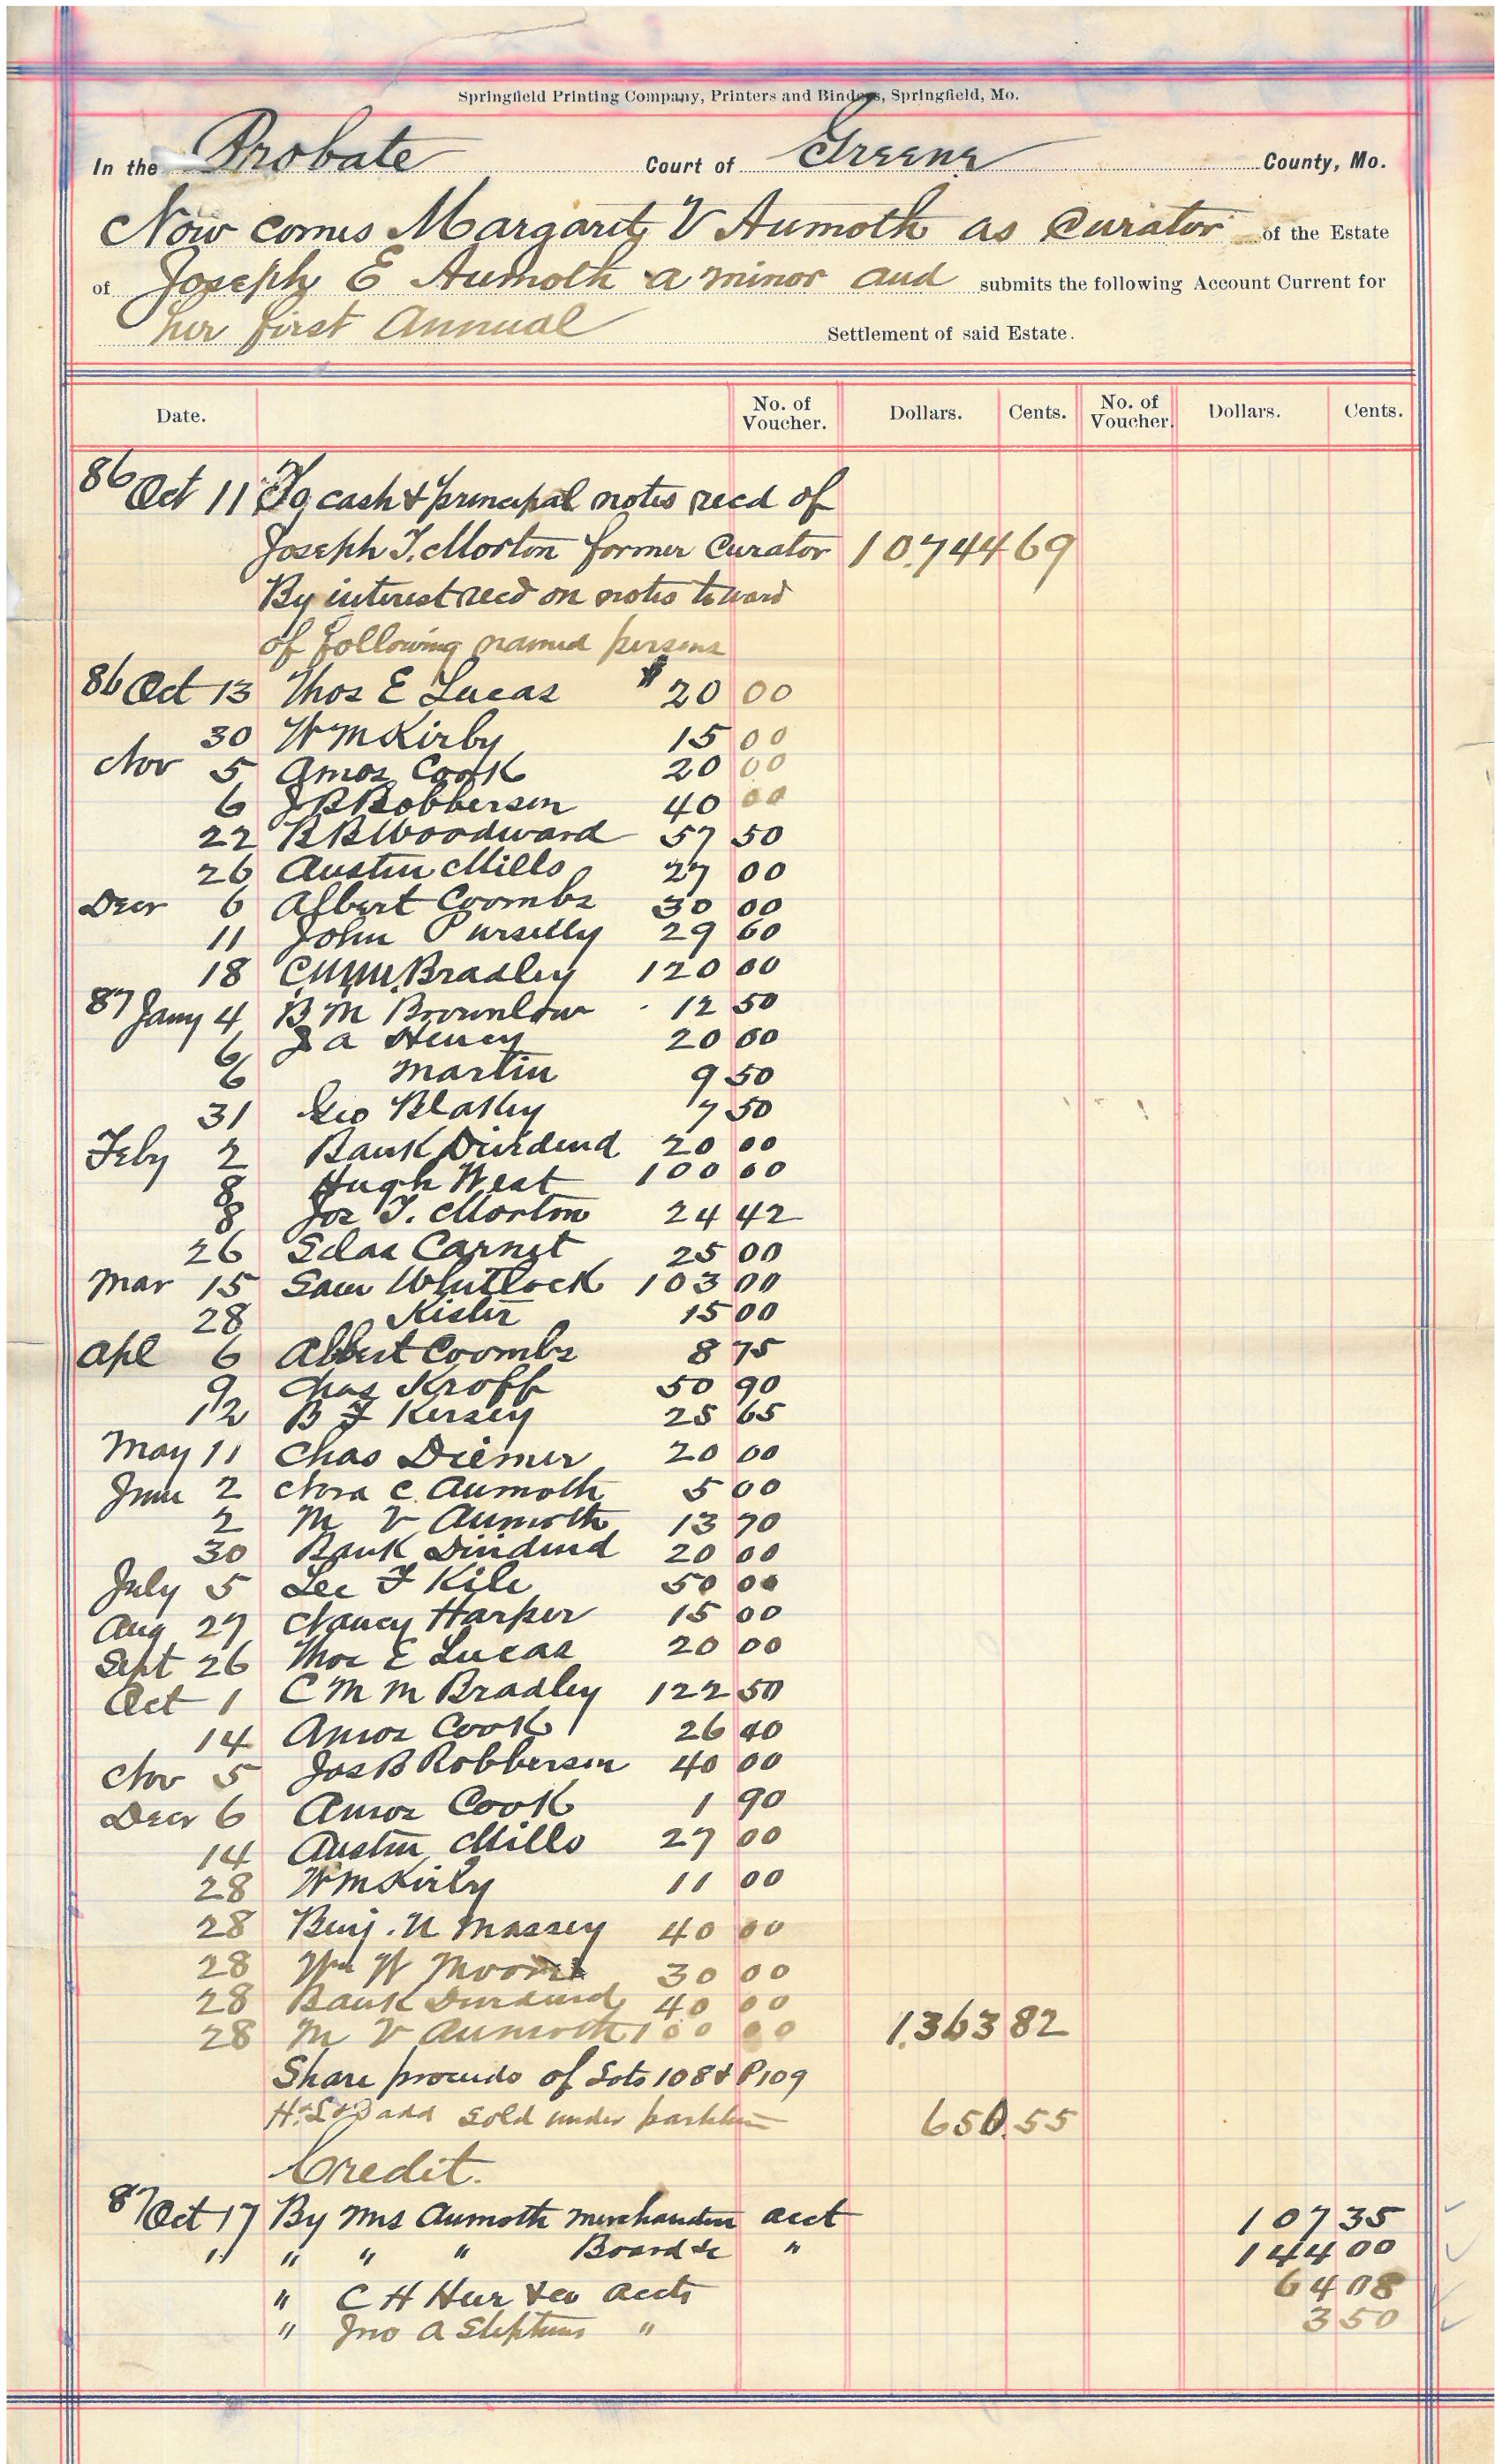 Springfield Printing Company, Printers and Binders, Springfield, Mo.
In the Probate Court of Greene County, Mo.
Now comes Margaret V Aumoth as Curator of the Estate
of Joseph E Aumoth a minor and submits the following Account Current for
her first Annual Settlement of said Estate.
Date. No. of Voucher. Dollars. Cents. No. of Voucher. Dollars. Cents.
86 Oct 11 To cash & principal notes recd of
Joseph T. Morton former Curator 10.744 69
By interest recd on notes toward
of following named persons
86 Oct 13 Thos E Lucas $ 20 00
30 Wm Kirby 15 00
Nov 5 Amos Cook 20 00
6 J B Robberson 40 00
22 B B Woodward 57 50
26 Austin Mills 27 00
Decr 6 Albert Coombs 30 00
11 John Purselly 29 60
18 C M M Bradley 120 00
87 Jany 4 B M Brownlow 12 50
6 J A Henry 20 00
6 Martin 9 50
31 Geo Blakey 7 50
Feby 2 Bank Dividend 20 00
8 Hugh West 100 00
8 Jos T. Morton 24 42
26 Silas Carnet 25 00
Mar 15 Sam Whitlock 103 00
28 Kister 15 00
Apl 6 Albert Coombs 8 75
9 Chas Kroff 50 90
12 B F Kersey 25 65
May 11 Chas Diemer 20 00
June 2 Nora C. Aumoth 5 00
2 M V Aumoth 13 70
30 Bank Dividend 20 00
July 5 Lee F Kile 50 00
Aug 27 Nancy Harper 15 00
Sept 26 Thos E Lucas 20 00
Oct 1 C M M Bradley 122 50
14 Amos Cook 26 40
Nov 5 Jas B Robberson 40 00
Decr 6 Amos Cook 1 90
14 Austin Mills 27 00
28 Wm Kirby 11 00
28 Benj. N Massey 40 00
28 Wm W Moore 30 00
28 Bank Dividend 40 00
28 M V Aumoth 100 00 1.363 82
Share proceeds of Lots 108 & P 109
add sold under partition 650.55
Credit.
87 Oct 17 By Mrs Aumoth Merchandise acct 107 35
" " " " Board &c " 144 00
" C H Heer & co accts 64 08
" Jno A Stephens " 3 50